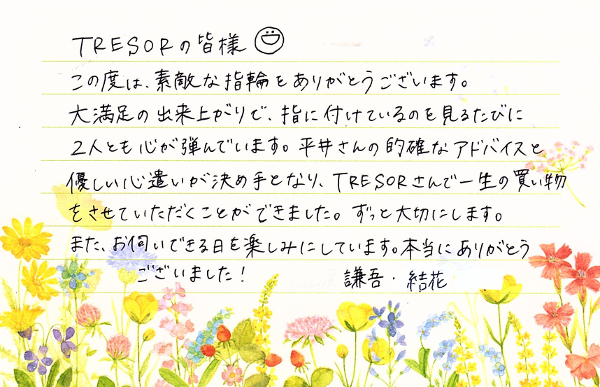 TRESORの皆様
この度は、素敵な指輪をありがとうございます。
大満足の出来上がりで、指に付けているのを見るたびに
2人とも心が弾んでいます。平井さんの的確なアドバイスと
優しい心遣いが決め手となり、TRESORさんで一生の買い物
をさせていただくことができました。ずっと大切にします。
また、お伺いできる日を楽しみにしています。本当にありがとう
ございました！
謙吾・結花